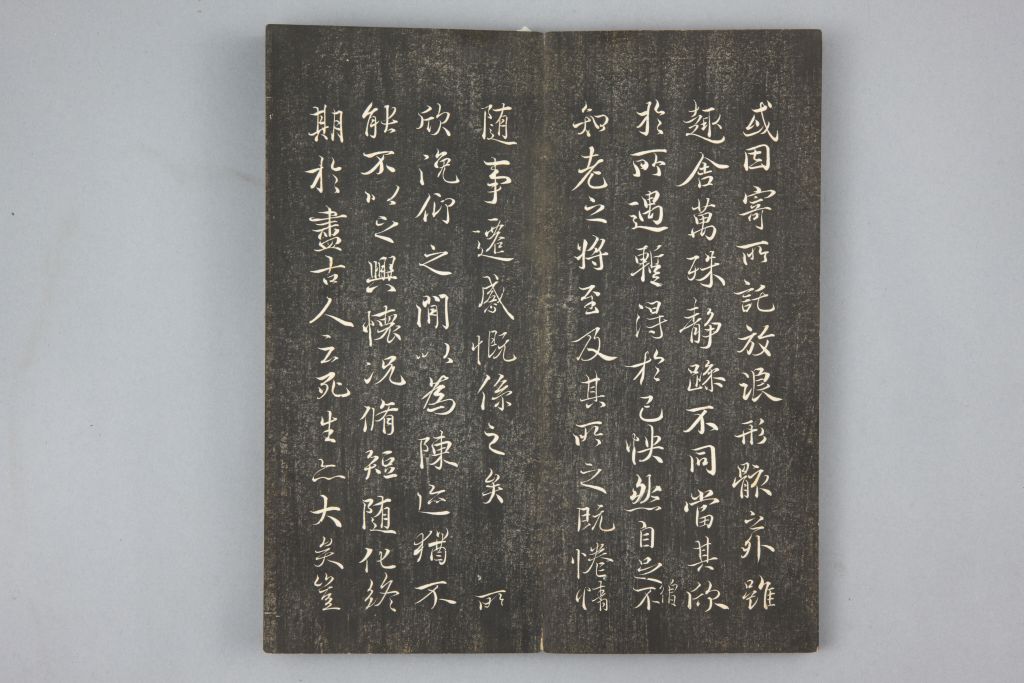 或因寄所託放浪形骸之外雖
趣舍萬殊靜躁不同當其欣
於所遇暫得於己怏然自足不
僧
知老之將至及其所之既惓情
隨事遷感慨係之矣 所
欣俛仰之閒以為陳迹猶不
能不以之興懷況脩短隨化終
期於盡古人云死生亦大矣豈